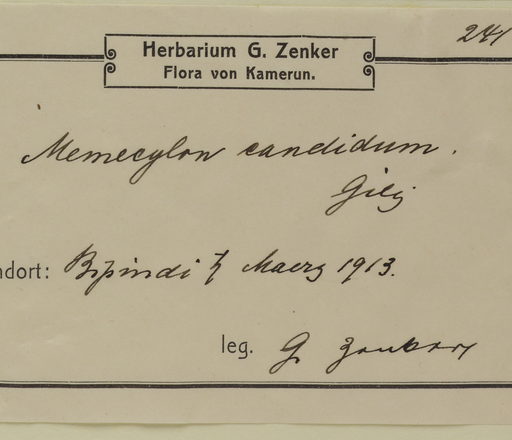 241
Herbarium G. Zenker
Flora von Kamerun.
Memecylon candidum.
Gilg
ndort: Bipindi Maerz 1913.
leg. G. Zenker